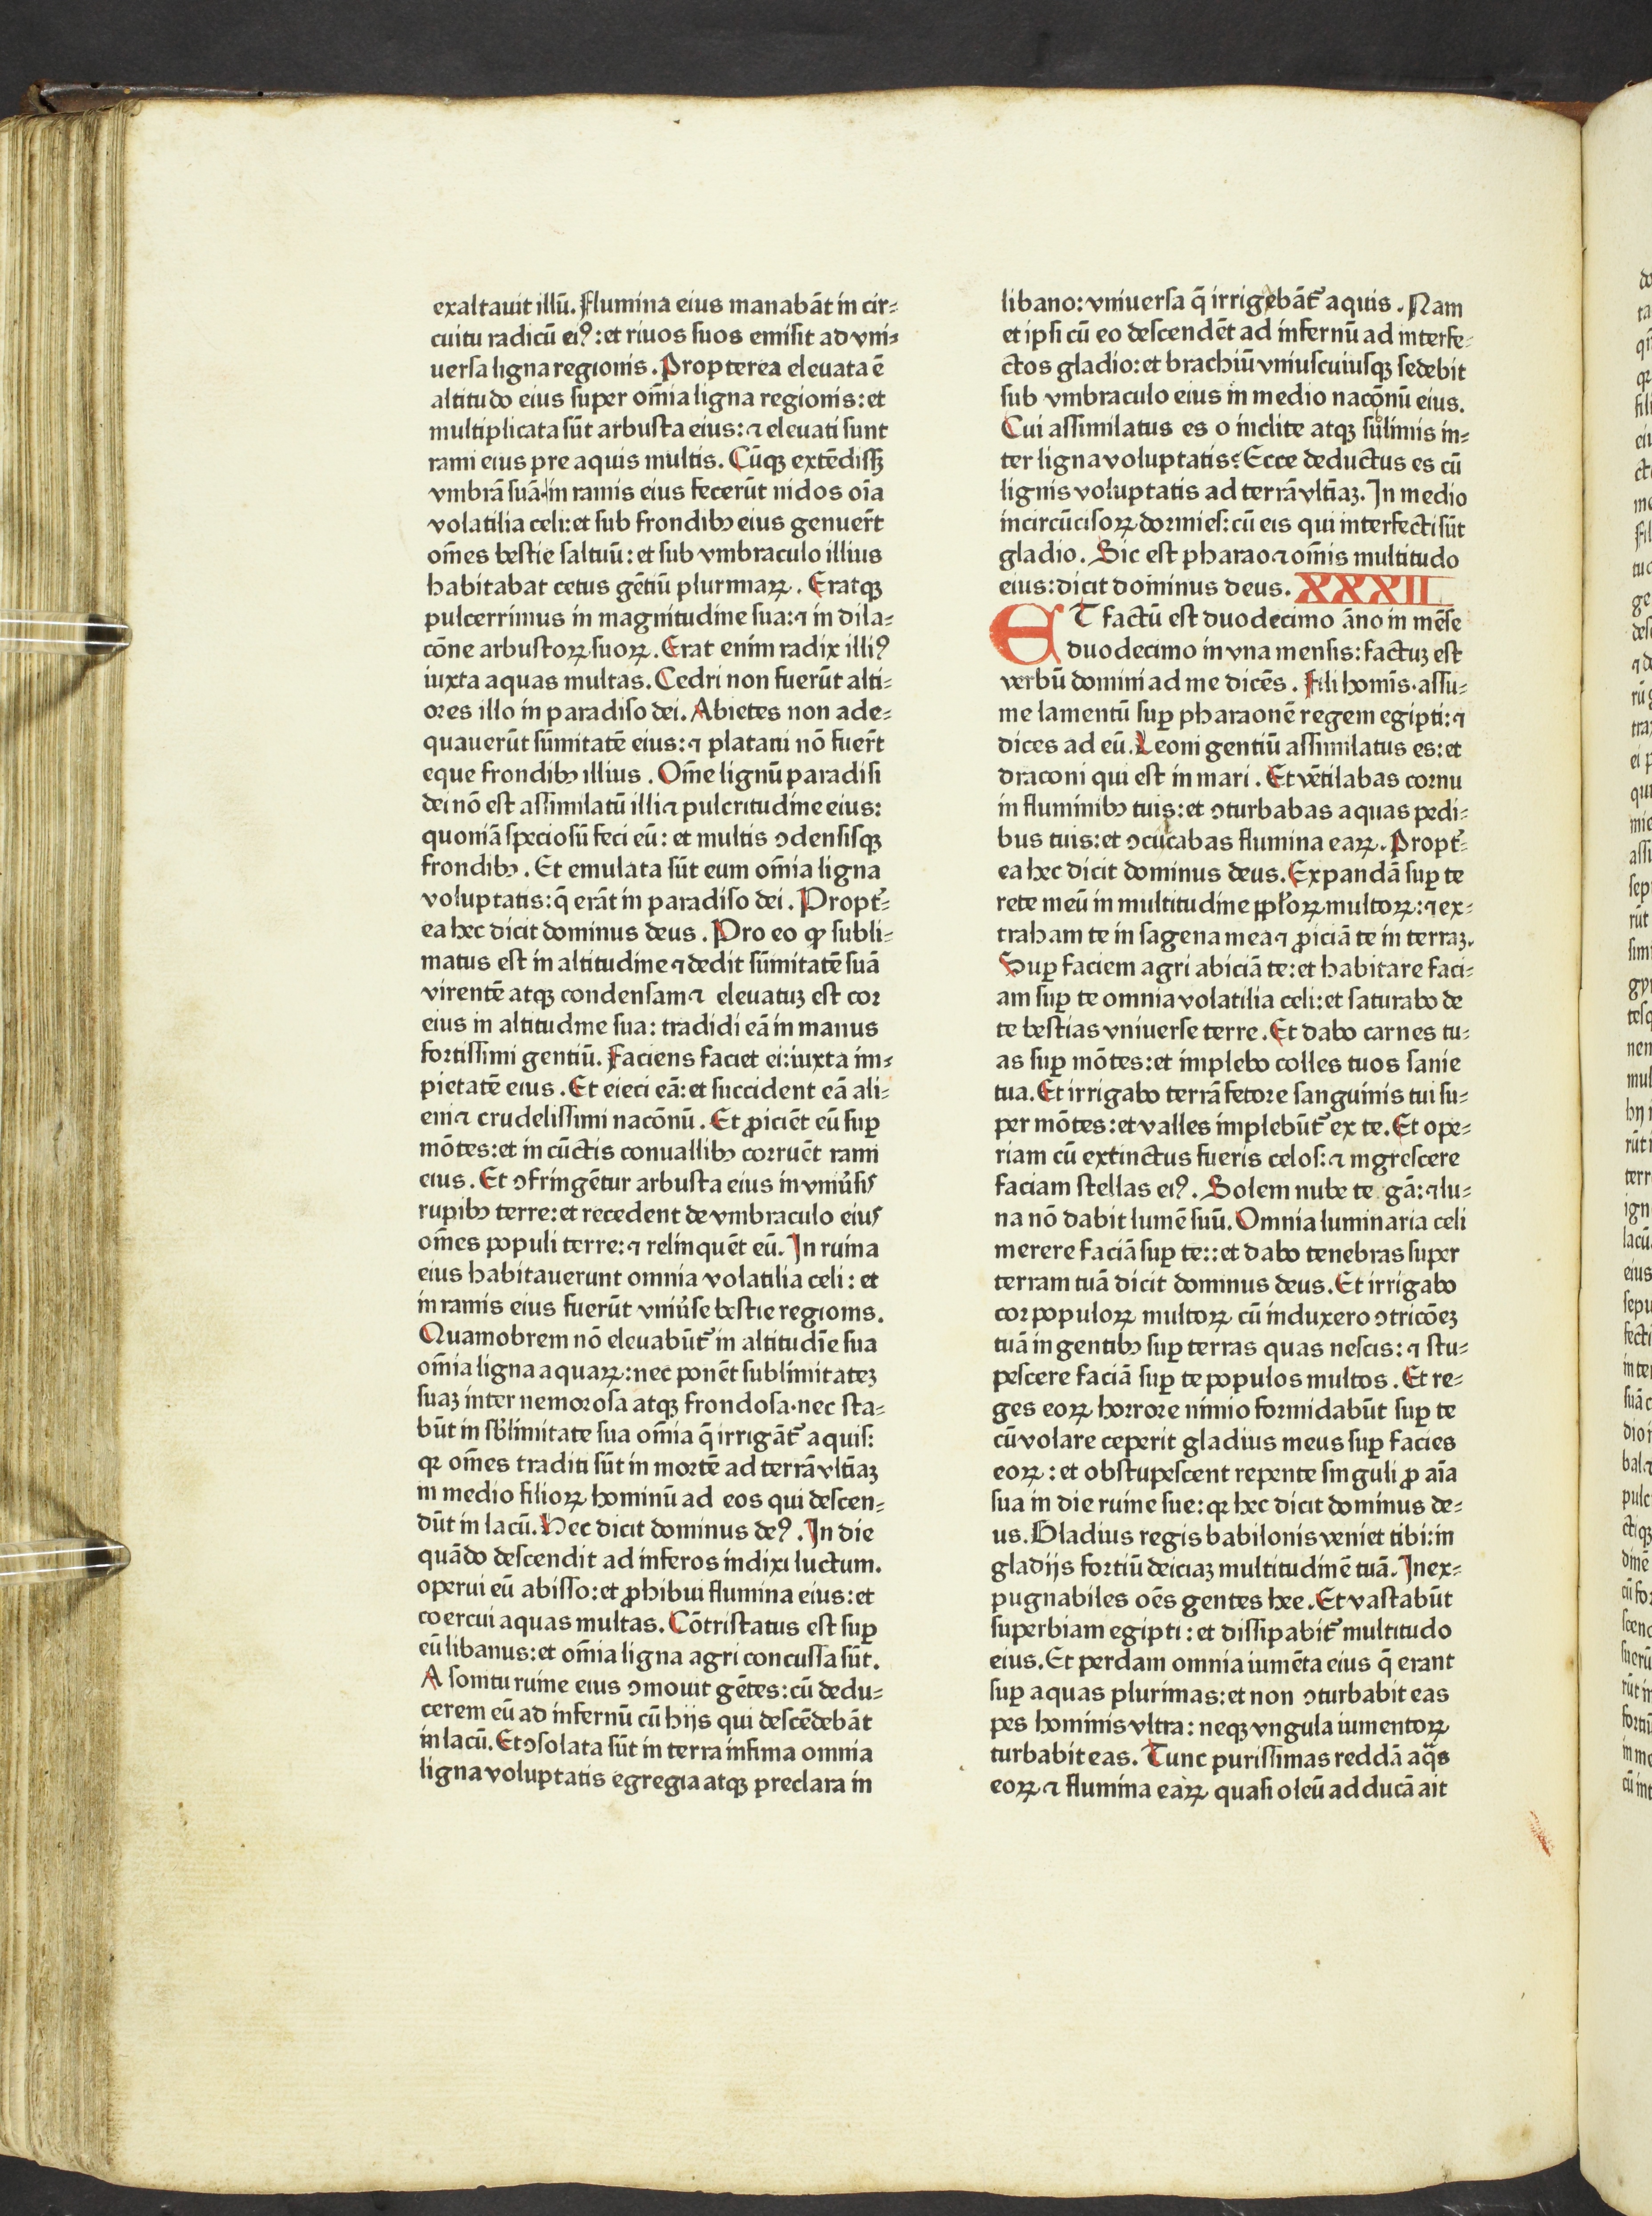 exaltauit illū. Flumina eius manabāt in cir⸗
cuitu radicū eiꝰ: et riuos suos emisit ad vni⸗
uersa ligna regionis. Propterea eleuata ē
altitudo eius super om̄ia ligna regionis: et
multiplicata sūt arbusta eius: ⁊ eleuati sunt
rami eius pre aquis multis. Cūqꝫ extēdissꝫ
vmbrā suā·in ramis eius fecerūt nidos oīa
volatilia celi: et sub frondibꝫ eius genuer̄t
om̄es bestie saltuū: et sub vmbraculo illius
habitabat cetus gētiū plurimaꝝ. Eratqꝫ
pulcerrimus in magnitudine sua: ⁊ in dila⸗
cōne arbustoꝝ suoꝝ. Erat enim radix illiꝰ
iuxta aquas multas. Cedri non fuerūt alti⸗
ores illo in paradiso dei. Abietes non ade⸗
quauerūt sūmitatē eius: ⁊ platani nō fuer̄t
eque frondibꝫ illius. Om̄e lignū paradisi
dei nō est assimilatū illi ⁊ pulcritudine eius:
quoniā speciosū feci eū: et multis ꝯdensisqꝫ
frondibꝫ. Et emulata sūt eum om̄ia ligna
voluptatis: q̄ erāt in paradiso dei. Propt̄⸗
ea hec dicit dominus deus. Pro eo ꝙ subli⸗
matus est in altitudine ⁊ dedit sūmitatē suā
virentē atqꝫ condensam ⁊ eleuatuꝫ est cor
eius in altitudine sua: tradidi eā in manus
fortissimi gentiū. Faciens faciet ei: iuxta im⸗
pietatē eius. Et eieci eā: et succident eā ali⸗
eni ⁊ crudelissimi nacōnū. Et ꝓiciēt eū suꝑ
mōtes: et in cūctis conuallibꝫ corruēt rami
eius. Et ꝯfringētur arbusta eius in vniu̕sis
rupibꝫ terre: et recedent de vmbraculo eius
om̄es populi terre: ⁊ relinquēt eū. In ruina
eius habitauerunt omnia volatilia celi: et
in ramis eius fuerūt vniu̕se bestie regionis.
Quamobrem nō eleuabūt᷑ in altitudīe sua
om̄ia ligna aquaꝝ: nec ponēt sublimitateꝫ
suaꝫ inter nemorosa atqꝫ frondosa·nec sta⸗
būt in sb̕limitate sua om̄ia q̄ irrigāt᷑ aquis:
qꝛ om̄es traditi sūt in mortē ad terrā vltīaꝫ
in medio filioꝝ hominū ad eos qui descen⸗
dūt in lacū. Hec dicit dominus deꝰ. In die
quādo descendit ad inferos indixi luctum.
operui eū abisso: et ꝓhibui flumina eius: et
coercui aquas multas. Cōtristatus est suꝑ
eū libanus: et om̄ia ligna agri concussa sūt.
A sonitu ruine eius ꝯmouit gētes: cū dedu⸗
cerem eū ad infernū cū hijs qui descēdebāt
in lacū. Et ꝯsolata sūt in terra infima omnia
ligna voluptatis egregia atqꝫ preclara in
libano: vniuersa q̄ irrigebāt᷑ aquis. Nam
et ipsi cū eo descendēt ad infernū ad interfe⸗
ctos gladio: et brachiū vniuscuiusqꝫ sedebit
sub vmbraculo eius in medio nacōnū eius.
Cui assimilatus es o inclite atqꝫ sublimis in⸗
ter ligna voluptatis? Ecce deductus es cū
lignis voluptatis ad terrā vltīaꝫ. In medio
incircūcisoꝝ dormies: cū eis qui interfecti sūt
gladio. Sic est pharao ⁊ om̄is multitudo
eius: dicit dominus deus. XXXII
ET factū est duodecimo āno in mēse
duodecimo in vna mensis: factuꝫ est
verbū domini ad me dicēs. Fili homīs·assu⸗
me lamentū suꝑ pharaonē regem egipti: ⁊
dices ad eū. Leoni gentiū assimilatus es: et
draconi qui est in mari. Et vētilabas cornu
in fluminibꝫ tuis: et ꝯturbabas aquas pedi⸗
bus tuis: et ꝯculcabas flumina eaꝝ. Propt̄⸗
ea hec dicit dominus deus. Expandā suꝑ te
rete meū in multitudine ppl̕oꝝ multoꝝ: ⁊ ex⸗
traham te in sagena mea ⁊ ꝓiciā te in terraꝫ.
Suꝑ faciem agri abiciā te: et habitare faci⸗
am suꝑ te omnia volatilia celi: et saturabo de
te bestias vniuerse terre. Et dabo carnes tu⸗
as suꝑ mōtes: et implebo colles tuos sanie
tua. Et irrigabo terrā fetore sanguinis tui su⸗
per mōtes: et valles implebūt᷑ ex te. Et ope⸗
riam cū extinctus fueris celos: ⁊ nigrescere
faciam stellas eiꝰ. Solem nube te gā: ⁊ lu⸗
na nō dabit lumē suū. Omnia luminaria celi
merere faciā suꝑ te:: et dabo tenebras super
terram tuā dicit dominus deus. Et irrigabo
cor populoꝝ multoꝝ cū induxero ꝯtricōeꝫ
tuā in gentibꝫ suꝑ terras quas nescis: ⁊ stu⸗
pescere faciā suꝑ te populos multos. Et re⸗
ges eoꝝ horrore nimio formidabūt suꝑ te
cū volare ceperit gladius meus suꝑ facies
eoꝝ: et obstupescent repente singuli ꝓ aīa
sua in die ruine sue: qꝛ hec dicit dominus de⸗
us. Gladius regis babilonis veniet tibi: in
gladijs fortiū deiciaꝫ multitudinē tuā. Inex⸗
pugnabiles oēs gentes hee. Et vastabūt
superbiam egipti: et dissipabit᷑ multitudo
eius. Et perdam omnia iumēta eius q̄ erant
suꝑ aquas plurimas: et non ꝯturbabit eas
pes hominis vltra: neqꝫ vngula iumentoꝝ
turbabit eas. Tunc purissimas reddā aq̄s
eoꝝ ⁊ flumina eaꝝ quasi oleū adducā ait